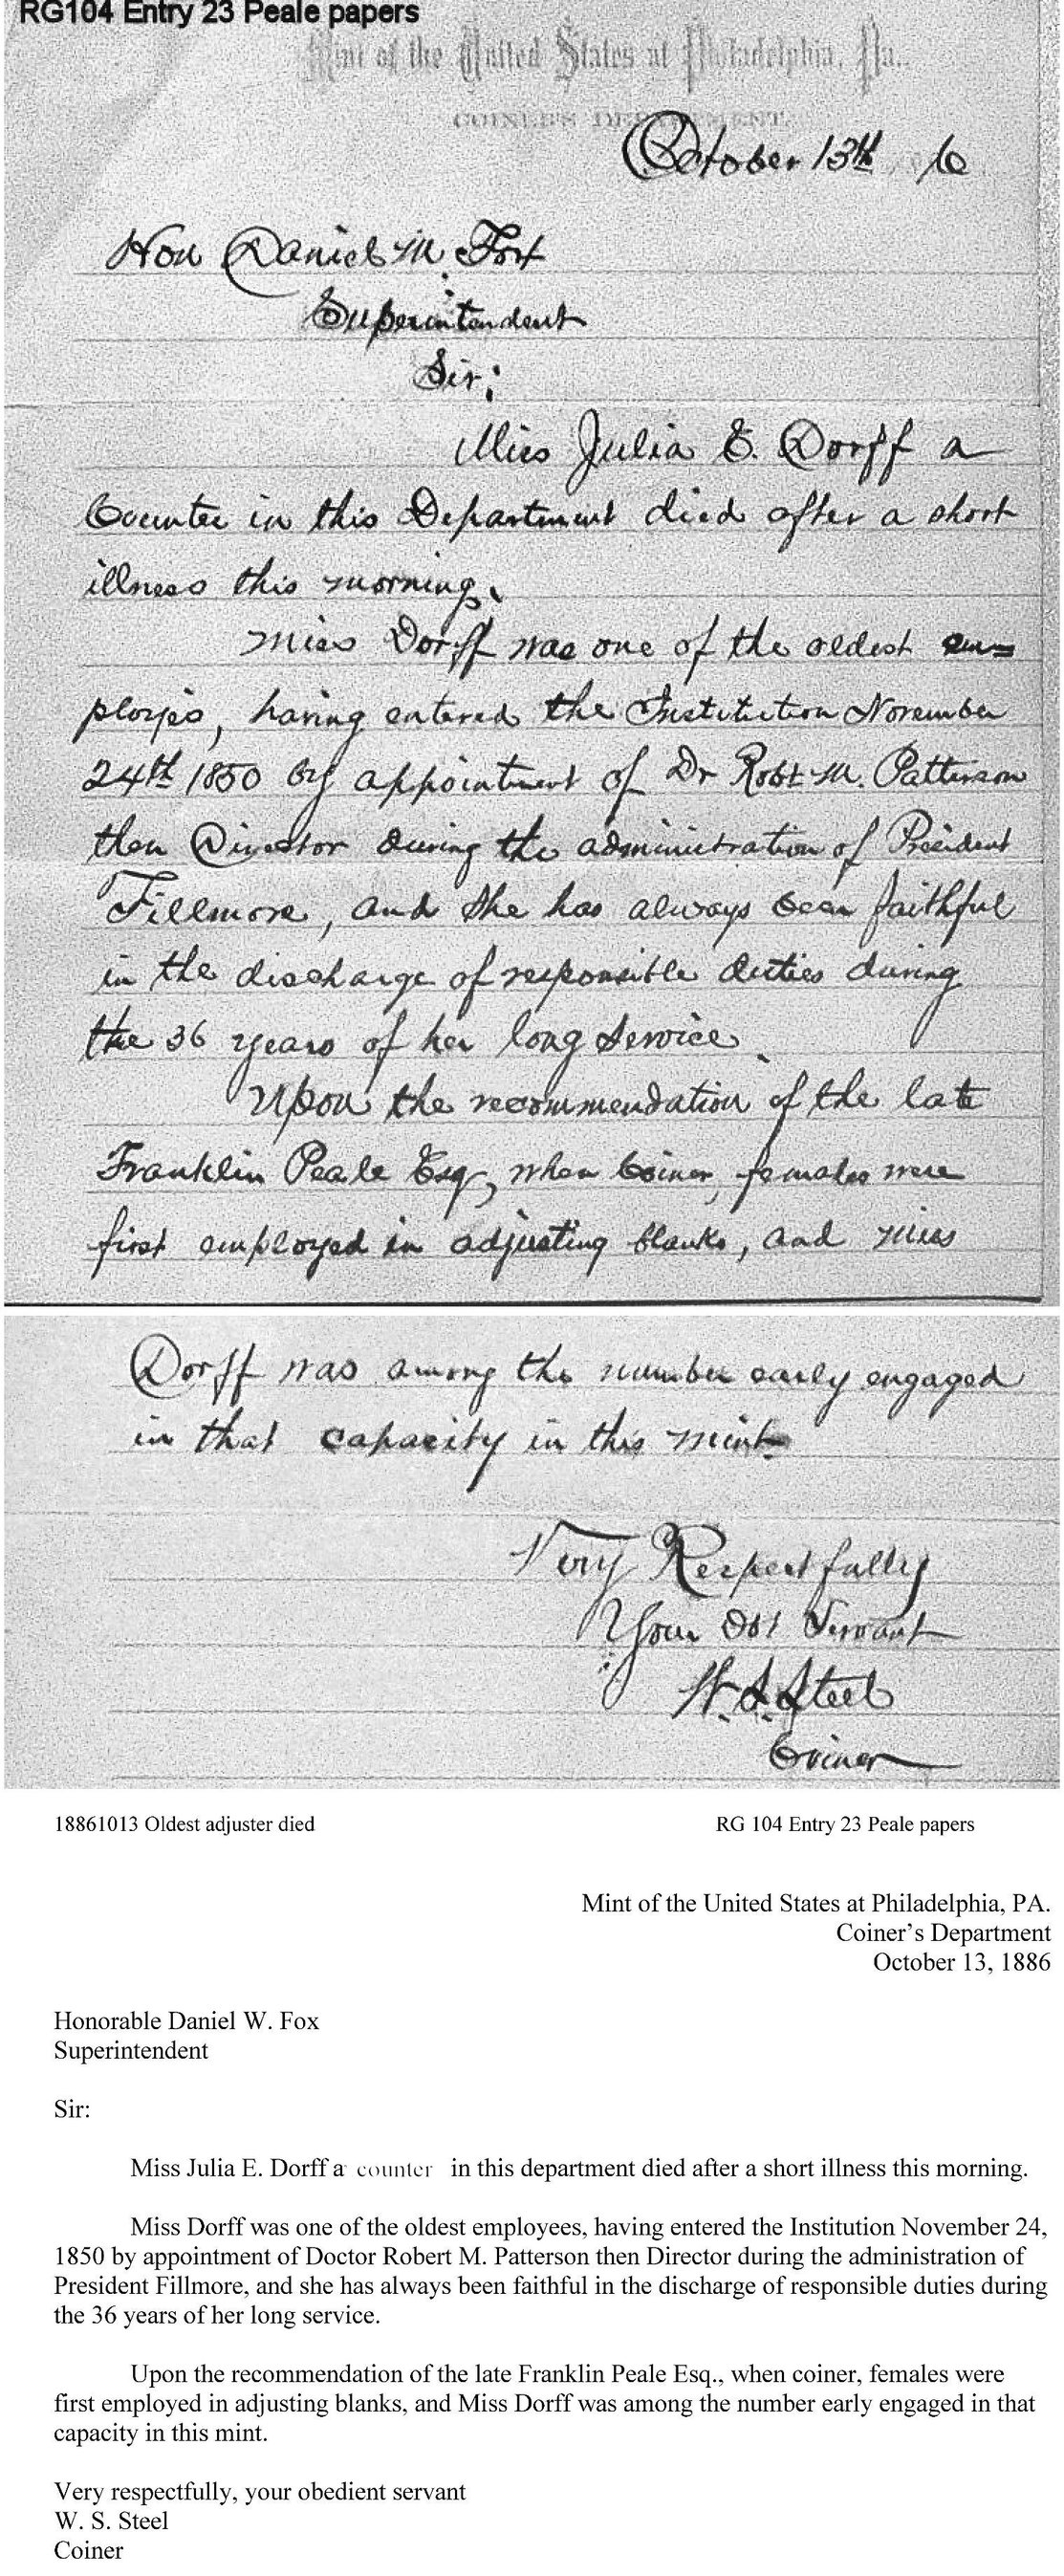 RG104 Entry 23 Peale papers
Mint of the United States at Philadelphia, Pa.
COINER'S DEPARTMENT.
October 13th 6
Hon Daniel M. Fox
Superintendent
Sir;
Miss Julia E. Dorff a
Counter in this Department died after a short
illness this morning.
Miss Dorff was one of the oldest em=
ployés, having entered the Institution November
24th 1850 by appointment of Dr Robt M. Patterson
then Director during the administration of President
Fillmore, and she has always been faithful
in the discharge of responsible duties during
the 36 years of her long service.
Upon the recommendation of the late
Franklin Peale Esq, when Coiner, females were
first employed in adjusting blanks, and Miss
Dorff was among the number early engaged
in that capacity in this mint
Very Respectfully
Your Obt Servant
W. S. Steel
Coiner
18861013 Oldest adjuster died RG 104 Entry 23 Peale papers
Mint of the United States at Philadelphia, PA.
Coiner's Department
October 13, 1886
Honorable Daniel W. Fox
Superintendent
Sir:
Miss Julia E. Dorff a counter in this department died after a short illness this morning.
Miss Dorff was one of the oldest employees, having entered the Institution November 24,
1850 by appointment of Doctor Robert M. Patterson then Director during the administration of
President Fillmore, and she has always been faithful in the discharge of responsible duties during
the 36 years of her long service.
Upon the recommendation of the late Franklin Peale Esq., when coiner, females were
first employed in adjusting blanks, and Miss Dorff was among the number early engaged in that
capacity in this mint.
Very respectfully, your obedient servant
W. S. Steel
Coiner